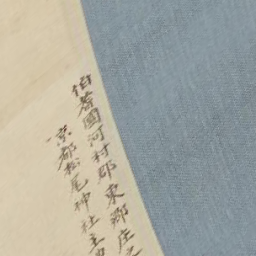 伯耆國河村郡東郷庄之
京都松尾神社主